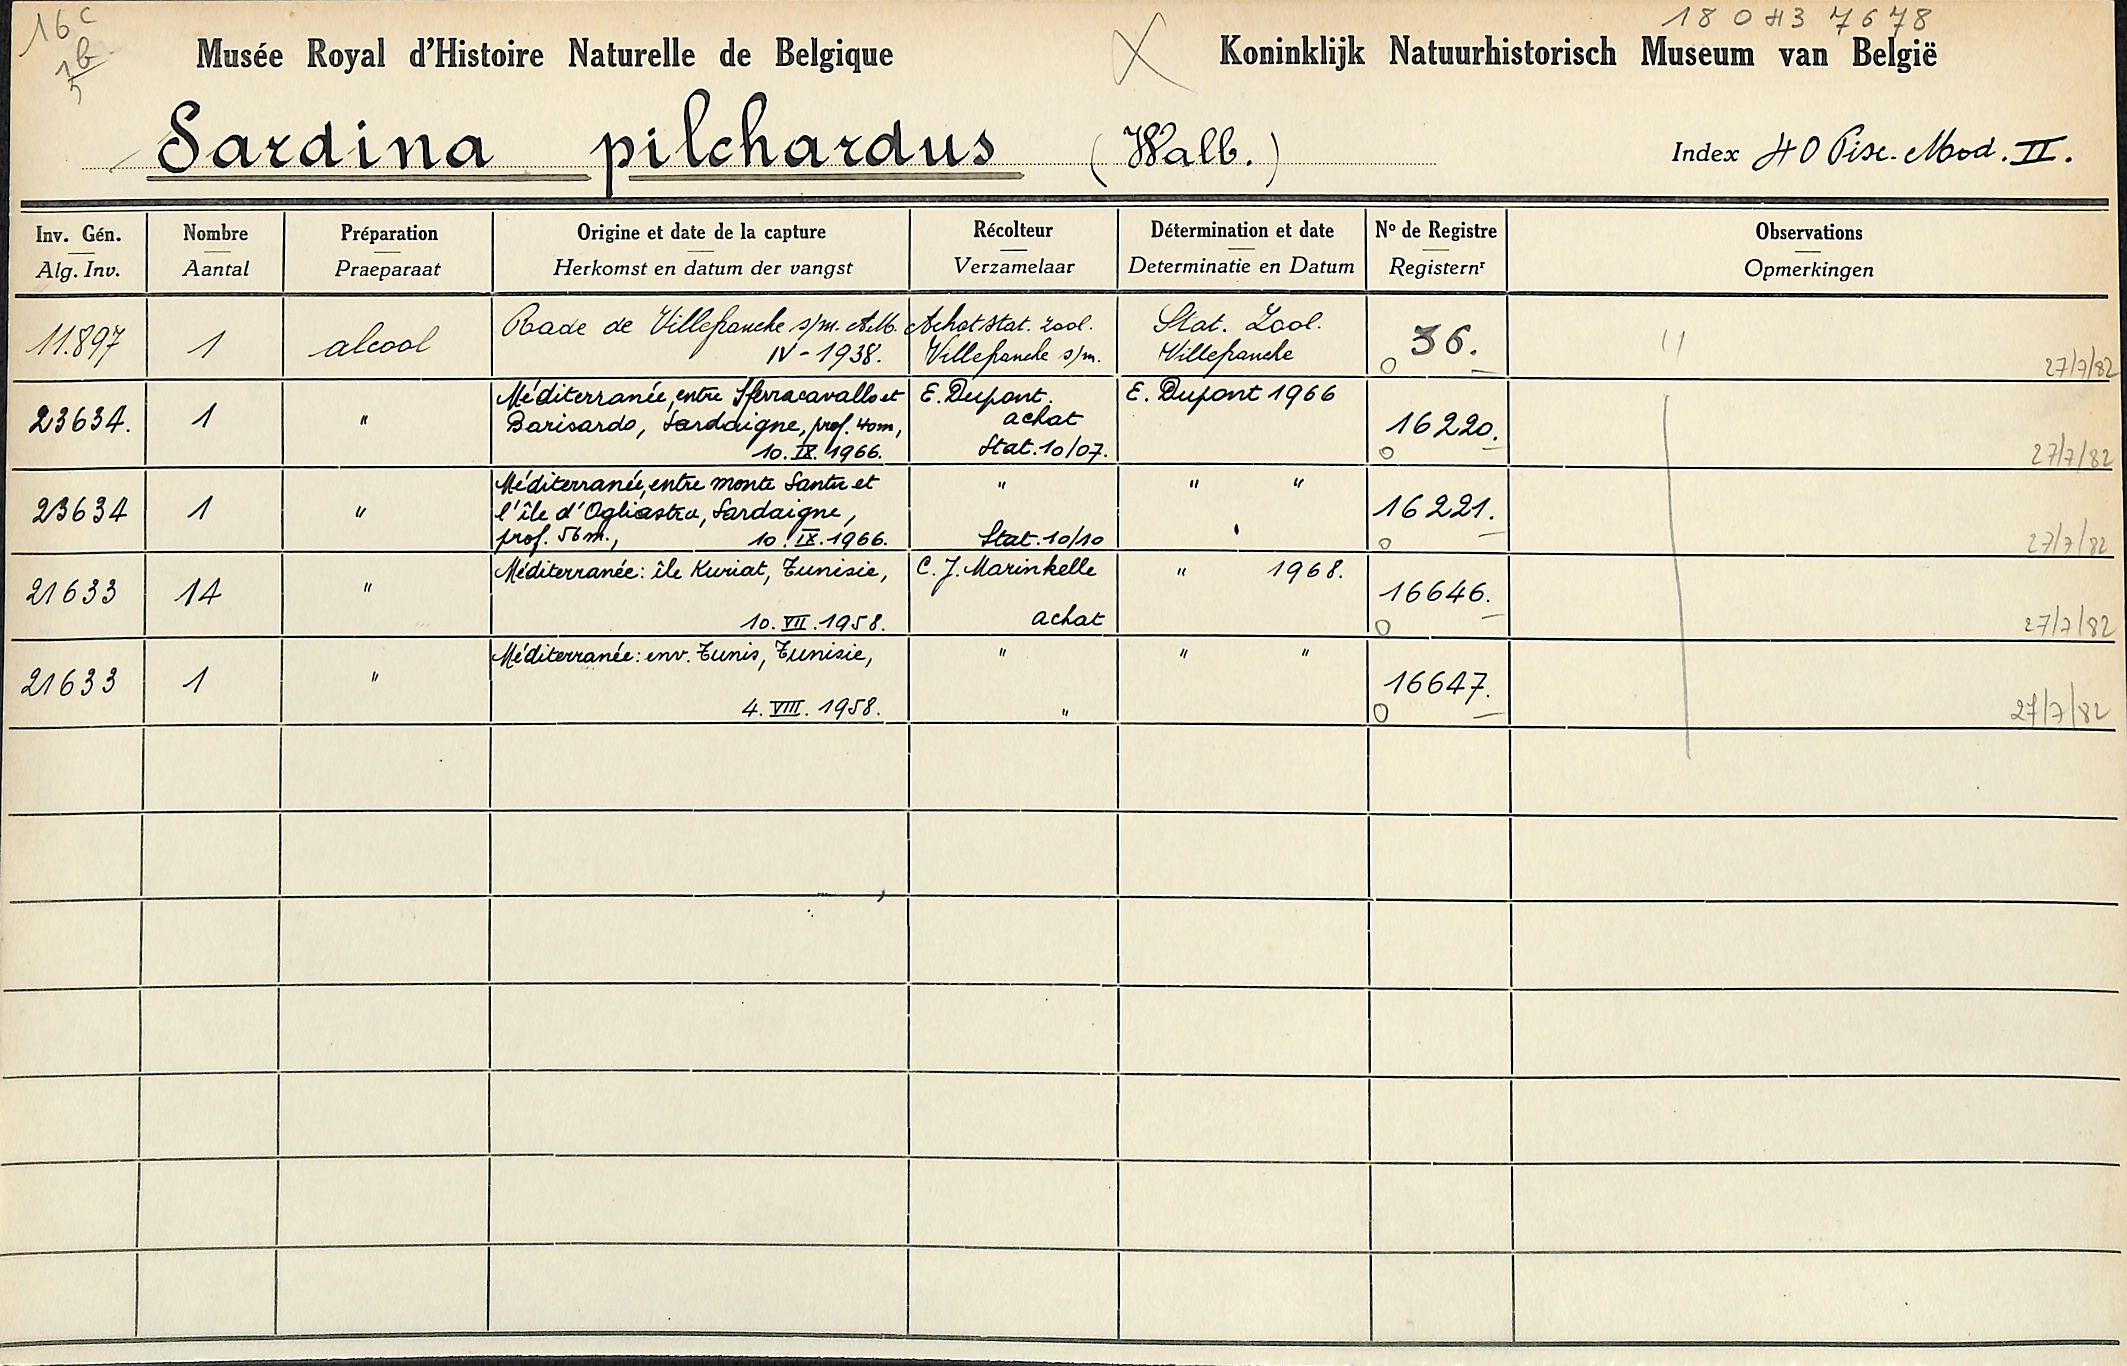 16 c
b
5
18 0 43 7678
Musée Royal d'Histoire Naturelle de Belgique
X
Koninklijk Natuurhistorisch Museum van België
Sardina pilchardus (Walb.)
Index 40 Pisc. Mod. II.
Inv. Gén. Nombre Préparation Origine et date de la capture Récolteur Détermination et date Nº de Registre Observations
Alg. Inv. Aantal Praeparaat Herkomst en datum der vangst Verzamelaar Determinatie en Datum Registernr Opmerkingen
11.897 1 alcool
Rade de Villefranche s/m. A.M.
IV - 1938.
Achat Stat. Zool.
Villefranche s/m.
Stat. Zool.
Villefranche
36.
"
27/7/82
23634. 1 "
Méditerranée, entre Sferracavallo et
Barisardo, Sardaigne, prof. 40m,
10. IX. 1966.
E. Dupont.
achat
Stat. 10/07.
E. Dupont 1966
16220.
27/7/82
23634 1 "
Méditerranée, entre monte Santu et
l'île d'Ogliastra, Sardaigne,
prof. 56 m., 10. IX. 1966.
"
Stat. 10/10
" "
16221.
27/7/82
21633 14 "
Méditerranée: île Kuriat, Tunisie,
10. VII. 1958.
C. J. Marinkelle
achat
" 1968.
16646.
27/7/82
21633 1 "
Méditerranée: env. Tunis, Tunisie,
4. VIII. 1958.
"
"
" "
16647.
27/7/82